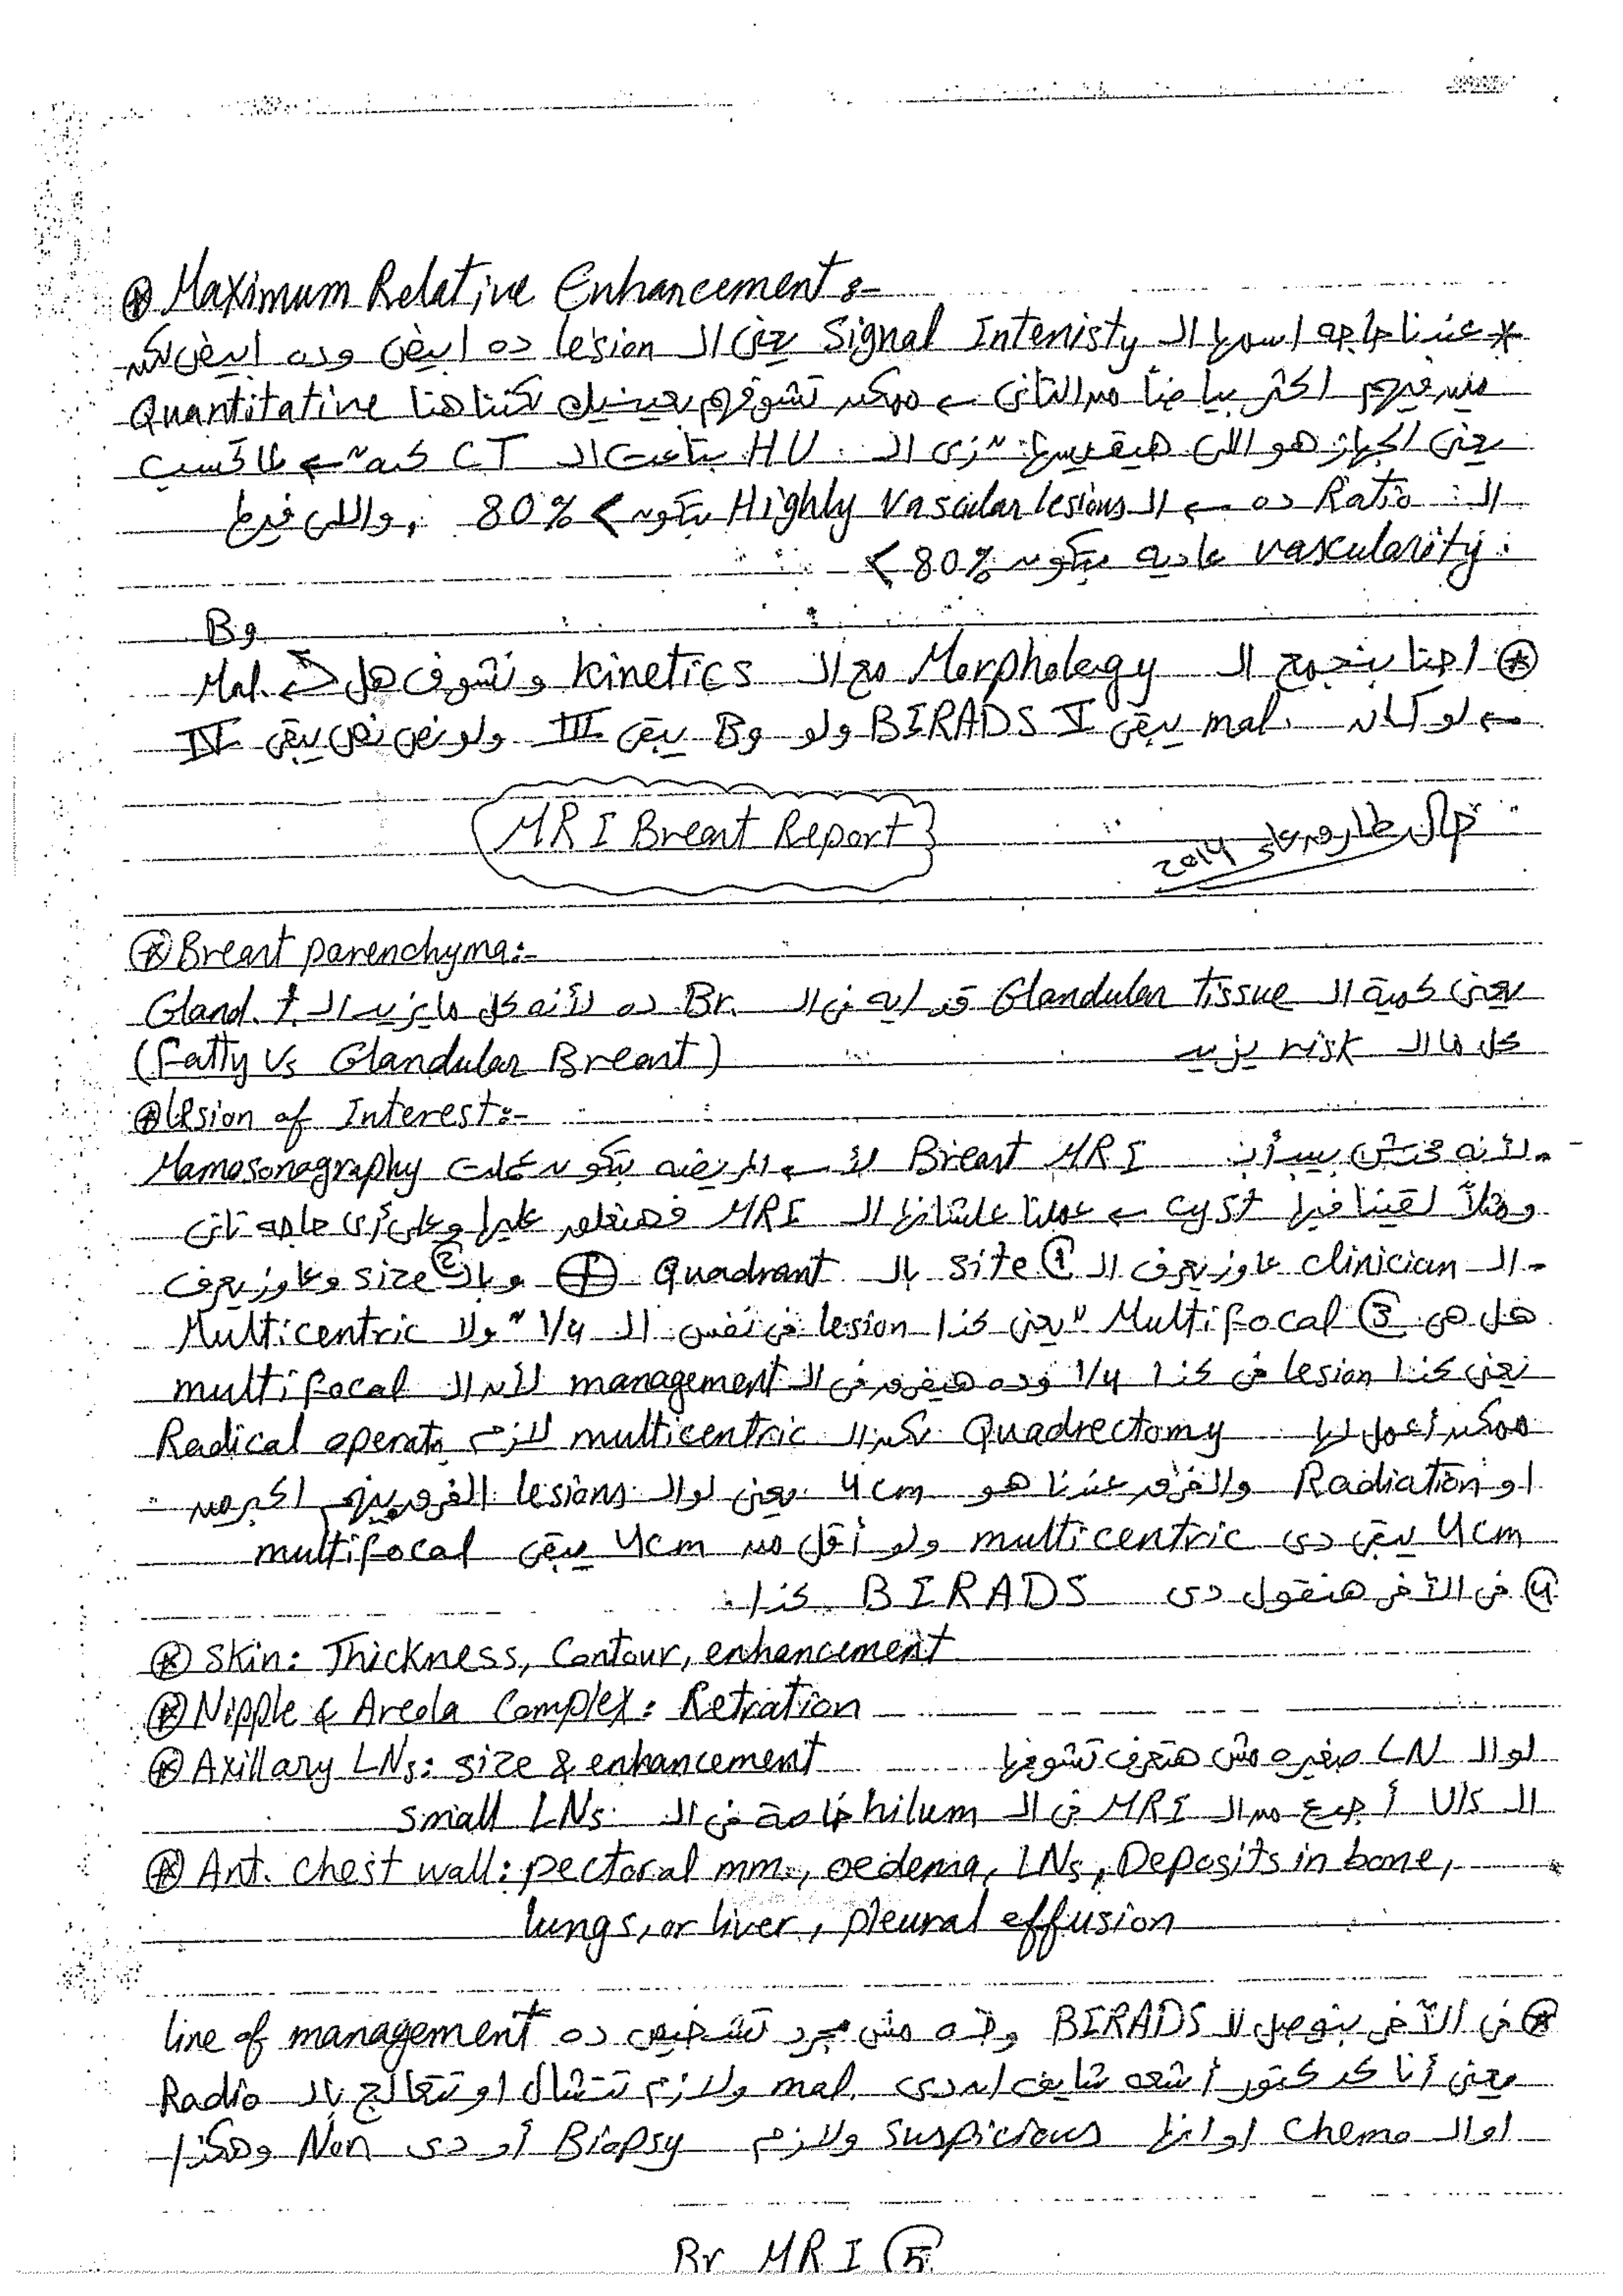 ⊛ Maximum Relative Enhancement:-
* عندنا حاجه اسمها الـ Signal Intenisty يعنى الـ lesion ده ابيض وده ابيض لكن
مين فيهم اكثر بياضاً من التانى ← ممكن تشوفهم بعينيك لكننا هنا Quantitative
يعنى الجهاز هو اللى هيقيسها " زى الـ HU بتاعت الـ CT كده " ← فاكسب
الـ Ratio ده ← الـ Highly vascular lesions بتكون > 80% , واللى فيها
vascularity عاديه بتكون 80% >
B9
⊛ احنا بنجمع الـ Morphology مع الـ kinetics ونشوف هل Mal.
← لو كان mal. يبقى BIRADS V ولو B9 يبقى III ولو نص نص يبقى IV
MRI Breast Report
جمال طارق ماهر 2014
⊛ Breast parenchyma:-
يعنى كمية الـ Glandular tissue قد ايه فى الـ Br. ده لأنه كل ما يزيد الـ Gland. t.
كل ما الـ risk يزيد
(Fatty Vs Glandular Breast)
⊛ Lesion of Interest:-
- لأنه محدش بيبدأ بـ Breast MRI لأن المريضه بتكون عملت Mamosonography
ومثلاً لقينا فيها cyst ← عملنا علشانها الـ MRI فهنعلق عليها وعلى أى حاجه تانى
- الـ clinician عاوز يعرف الـ ① site بالـ Quadrant ⊕ وبالـ ② size وعاوز يعرف
هل هى ③ Multifocal "يعنى كذا lesion فى نفس الـ 1/4" ولا Multicentric
يعنى كذا lesion فى كذا 1/4 وده هيفرق فى الـ management لأن الـ multifocal
ممكن أعمل لها Quadrectomy لكن الـ multicentric لازم Radical operatn
او Radiation والفرق عندنا هو 4cm يعنى لو الـ lesions الفرق بينهم اكبر من
4cm يبقى دى multicentric ولو أقل من 4cm يبقى multifocal
④ فى الآخر هنقول دى BIRADS كذا:
⊛ Skin: Thickness, Contour, enhancement
⊛ Nipple & Areola Complex: Retration
⊛ Axillary LNs: size & enhancement لو الـ LN صغيره مش هتعرف تشوفها
الـ U/S أجدع من الـ MRI فى الـ hilum خاصة فى الـ small LNs
⊛ Ant. chest wall: pectoral mm., oedema, LNs, Deposits in bone,
lungs, or liver, pleural effusion
⊛ فى الآخر بنوصل للـ BIRADS وده مش مجرد تشخيص ده line of management
يعنى أنا كدكتور أشعه شايف ان دى mal. ولازم تتشال او تتعالج بالـ Radio
او الـ Chemo او انها suspicious ولازم Biopsy أو دى Non وهكذا
Br MRI ⑤